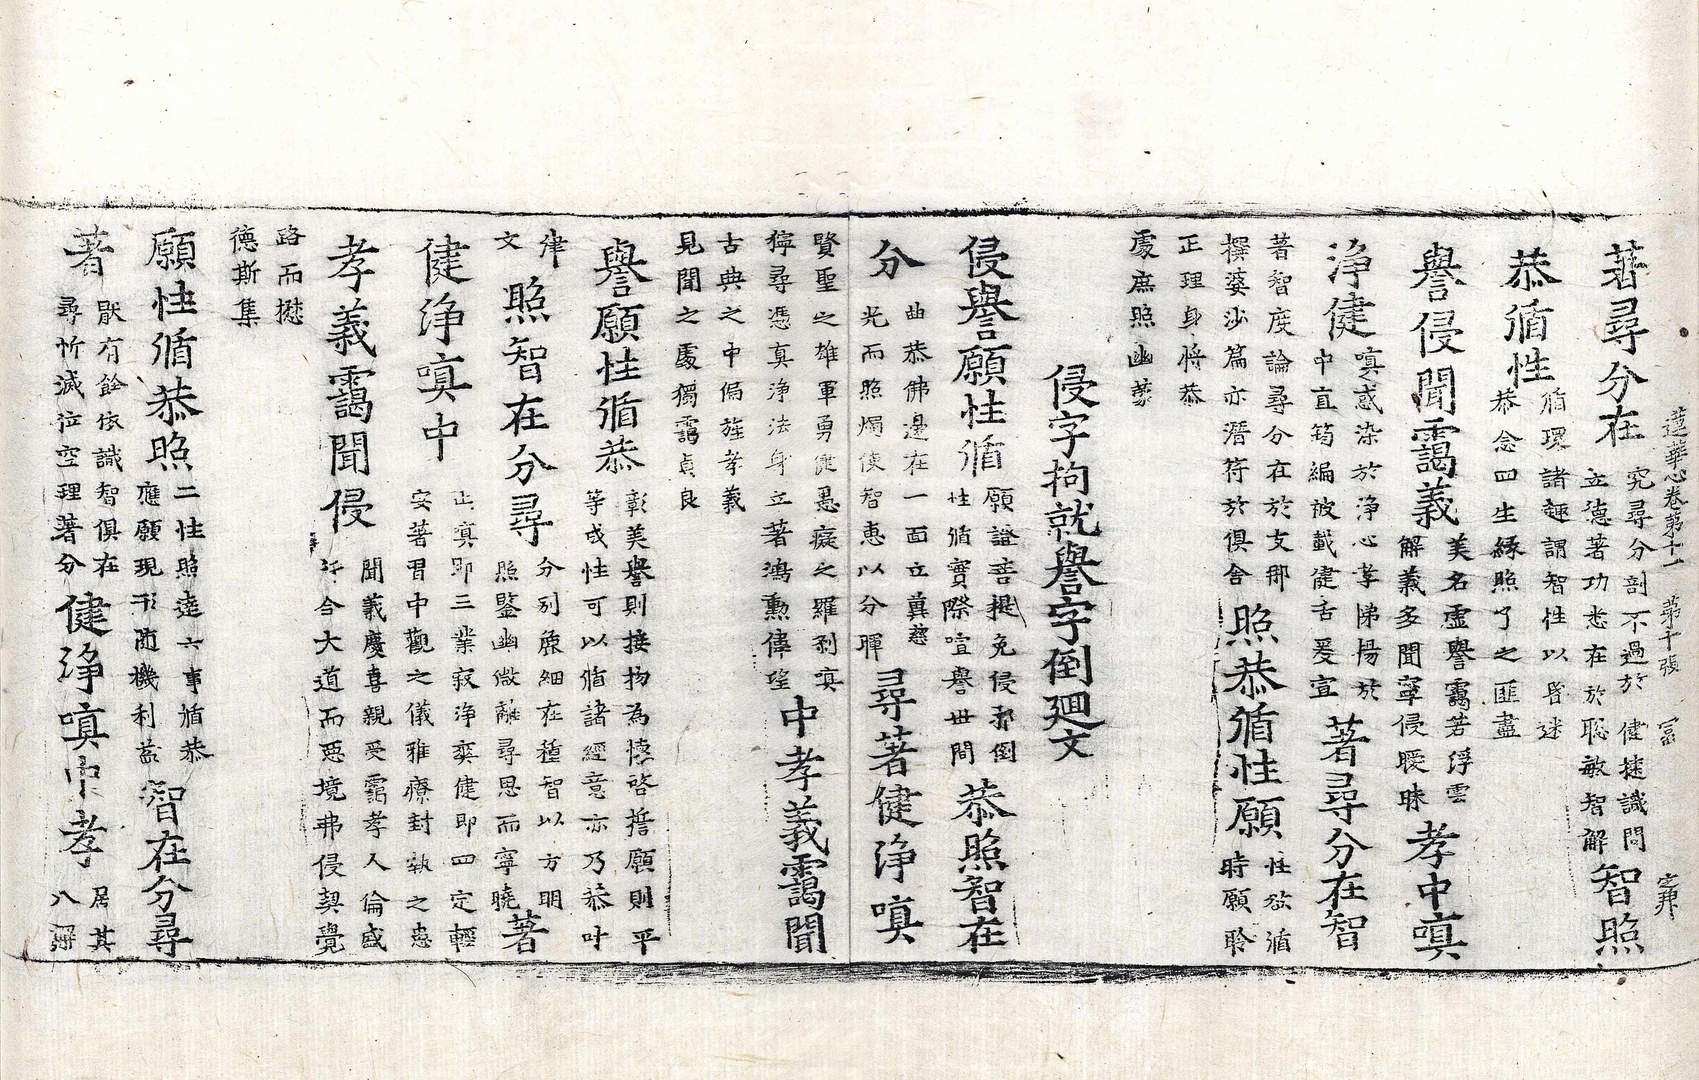 蓮華心卷第十一 第十張 冨
著尋分在
究尋分剖不過於健捷識問
立德著功悉在於聡敏智解
智照
恭循性
循環諸趣謂智性以昏迷
恭念四生緣照了之匪盡
譽侵聞靄義
美名虛譽靄若浮雲
解義多聞寧侵曖昧
孝中嗔
淨健
嗔惑染於淨心孝悌揚於
中直筠編被載健舌爰宣
著尋分在智
著智度論尋分在於支那
撰婆沙篇亦潛符於俱舍
照恭循性願
性欲循
時願聆
正理身將恭
處庶照幽蒙
侵字拘就譽字倒廻文
侵譽願性循
願證菩提免侵邪倒
性循實際喧譽世間
恭照智在
分
曲恭佛邊在一面立真慈
光而照燭使智惠以分暉
尋著健淨嗔
賢聖之雄軍勇健愚癡之羅刹嗔
獰尋憑真淨法身立著鴻勳偉望
中孝義靄聞
古典之中偏旌孝義
見聞之處獨靄貞良
譽願性循恭
彰美譽則接物為懷啓誓願則平
等成性可以循諸經意亦乃恭叶
律
文
照智在分尋
分別麁細在種智以方明
照鑒幽微離尋思而寧曉
著
健淨嗔中
止嗔即三業寂淨奕健即四定輕
安著習中觀之儀雅療封執之恚
孝義靄聞侵
聞義慶喜親受靄孝人倫感
合大道而惡境弗侵契覺
路而懋
德斯集
願性循恭照
二性照達六事循恭
應願現形隨機利益
智在分尋
著
厭有餘依識智俱在
尋忻滅位空理著分
健淨嗔中孝
居其
八